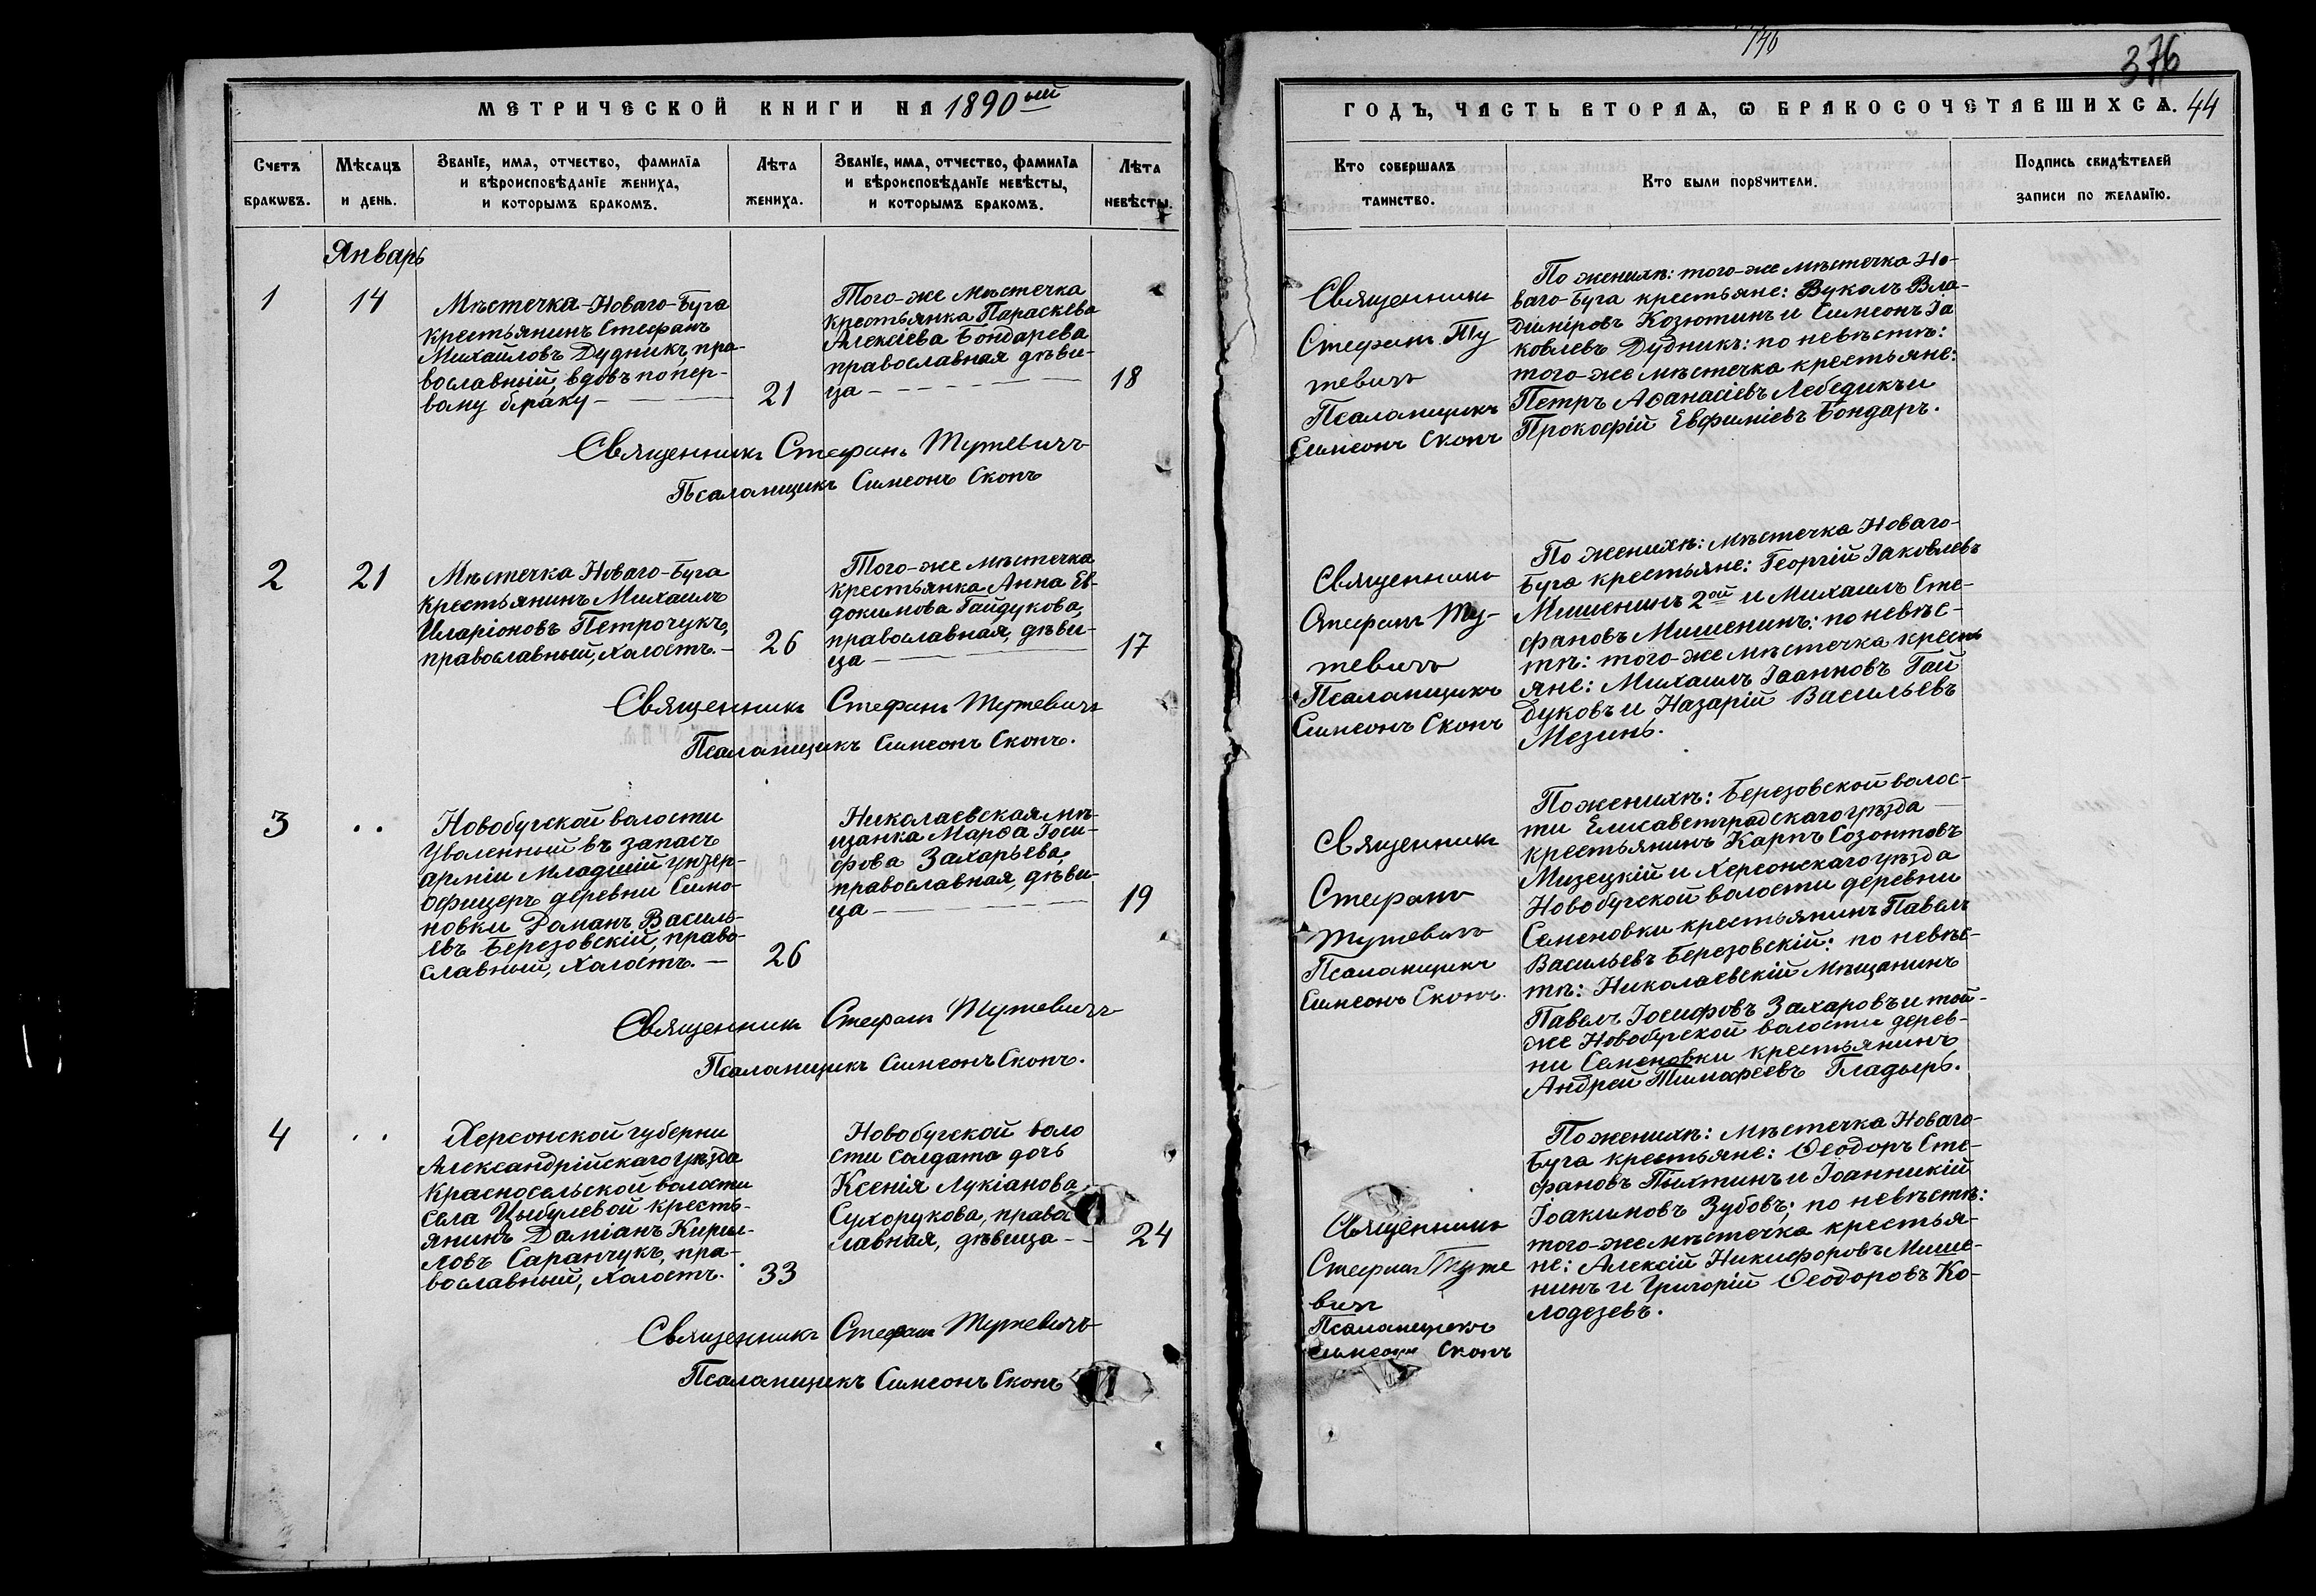 МЕТРИЧЕСКОЙ КНИГИ НА 1890ый
Счетъ браковъ.
Мѣсяцъ и день.
Званіе, имя, отчество, фамилія
и вѣроисповѣданіе жениха,
и которымъ бракомъ.
Лѣта жениха.
Званіе, имя, отчество, фамилія
и вѣроисповѣданіе невѣсты,
и которымъ бракомъ.
Лѣта невѣсты.
Январь
1
14
Мѣстечка-Новаго-Буга
крестьянинъ Стефанъ
Михайловъ Дудникъ, пра-
вославный, вдовъ по пер-
вому браку-
21
Того-же мѣстечка
крестьянка Параскева
Алексіева Бондарева
православная дѣви-
ца-
18
Священникъ Стефанъ Тутевичъ
Псаломщикъ Симеонъ Скопъ
2
21
Мѣстечка Новаго-Буга
крестьянинъ Михаилъ
Иларіоновъ Петрочукъ,
православный, холостъ.-
26
Того-же мѣстечка
крестьянка Анна Ев-
докимова Гайдукова,
православная, дѣви-
ца-
17
Священникъ Стефанъ Тутевичъ
Псаломщикъ Симеонъ Скопъ.
3
. .
Новобугской волости
Уволенный въ запасъ
арміи Младшій унтер-
офицеръ деревни Симо-
новки Романъ Василь-
евъ Березовскій, право-
славный, холостъ.-
26
Николаевская мѣ-
щанка Марѳа Іоси-
фова Захарьева,
православная, дѣви-
ца-
19
Священникъ Стефанъ Тутевичъ
Псаломщикъ Симеонъ Скопъ.
4
. .
Херсонской губерни
Александрійскаго уѣзда
Красносельской волости
села Цыбулевой кресть-
янинъ Даміанъ Кирил-
ловъ Саранчукъ, пра-
вославный, холостъ.
33
Новобугской воло
сти солдата дочь
Ксенія Лукіанова
Сухорукова, право
лавная, дѣвица-
24
Священникъ Стефанъ Тутевичъ
Псаломщикъ Симеонъ Скопъ
376
ГОДЪ, ЧАСТЬ ВТОРАЯ, Ѡ БРАКОСОЧЕТАВШИХСЯ. 44
Кто совершалъ
таинство.
Кто были поручители.
Подпись свидѣтелей
записи по желанію.
Священникъ
Стефанъ Ту
тевичъ
Псаломщикъ
Симеонъ Скопъ
По женихѣ: того-же мѣстечка Но-
ваго-Буга крестьяне: Вуколъ Вла-
диміровъ Козютинъ и Симеонъ Іа
ковлевъ Дудникъ: по невѣстѣ:
того-же мѣстечка крестьяне:
Петръ Аѳанасіевъ Лебедикъ и
Прокофій Евфиміевъ Бондарь.
Священникъ
Стефанъ Ту-
тевичъ
Псаломщикъ
Симеонъ Скопъ
По женихѣ: мѣстечка Новаго-
Буга крестьяне: Георгій Іаковлевъ
Мишенинъ 2ой и Михаилъ Сте-
фановъ Мишенинъ: по невѣс-
тѣ: того-же мѣстечка кресть
яне: Михаилъ Іоанновъ Гай
дуковъ и Назарій Васильевъ
Мезинъ.
Священникъ
Стефанъ
Тутевичъ
Псаломщикъ
Симеонъ Скопъ.
По женихѣ: Березовской волос-
ти Елисаветградскаго уѣзда
крестьянинъ Карпъ Созонтовъ
Мизецкій и Херсонскаго уѣзда
Новобугской волости деревни
Семеновки крестьянинъ Павелъ
Васильевъ Березовскій: по невѣс-
тѣ: Николаевскій Мѣщанинъ
Павелъ Іосифовъ Захаровъ и той-
же Новобугской волости дерев-
ни Семеновки крестьянинъ
Андрей Тимофеевъ Гладырь.
Священникъ
Стефанъ Туте
вичъ
Псаломщикъ
Симеонъ Скопъ
По женихѣ: мѣстечка Новаго-
Буга крестьяне: Ѳеодоръ Сте-
фановъ Пыхтинъ и Іоанникій
Іоакимовъ Зубовъ; по невѣстѣ:
того-же мѣстечка крестья-
не: Алексій Никифоровъ Мише-
нинъ и Григорій Ѳеодоровъ Ко-
лодезевъ.